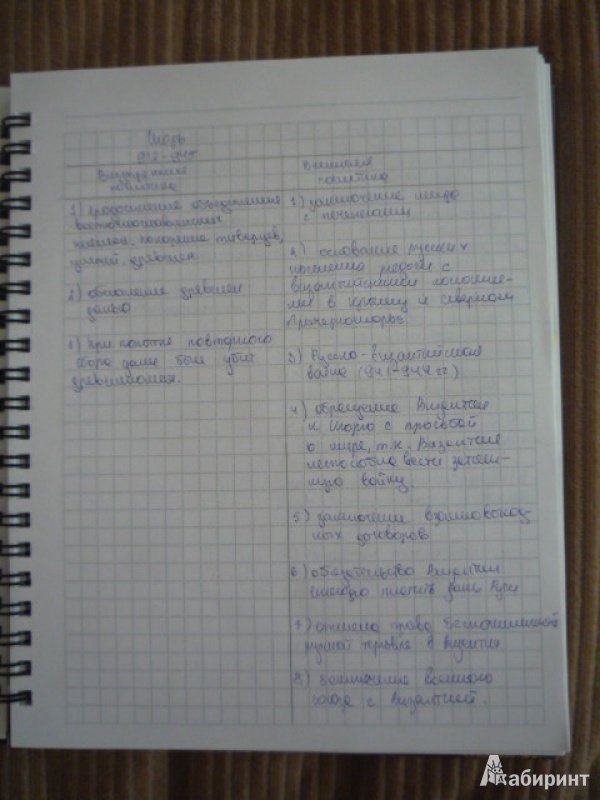 Игорь
912-945
Внутренняя
политика
1) продолжение объединения
восточнославянских
племен, покорение тиверцев,
уличей, древлян
2) обложение древлян
данью
3) при попытке повторного
сбора дани был убит
древлянами.
Внешняя
политика
1) заключение мира
с печенегами
2) основание русских
поселений рядом с
византийскими колония-
ми в Крыму и северном
Причерноморье.
3) Русско-византийская
война (941-944 гг)
4) обращение Византии
к Игорю с просьбой
о мире, т.к. Византия
неспособна вести
войну.
5) заключение взаимовыгод-
ных договоров
6) обязательство Византии
ежегодно платить дань Руси
7) отмена права беспошлинной
русской торговли в Византии
8) заключение военного
союза с Византией.
Лабиринт